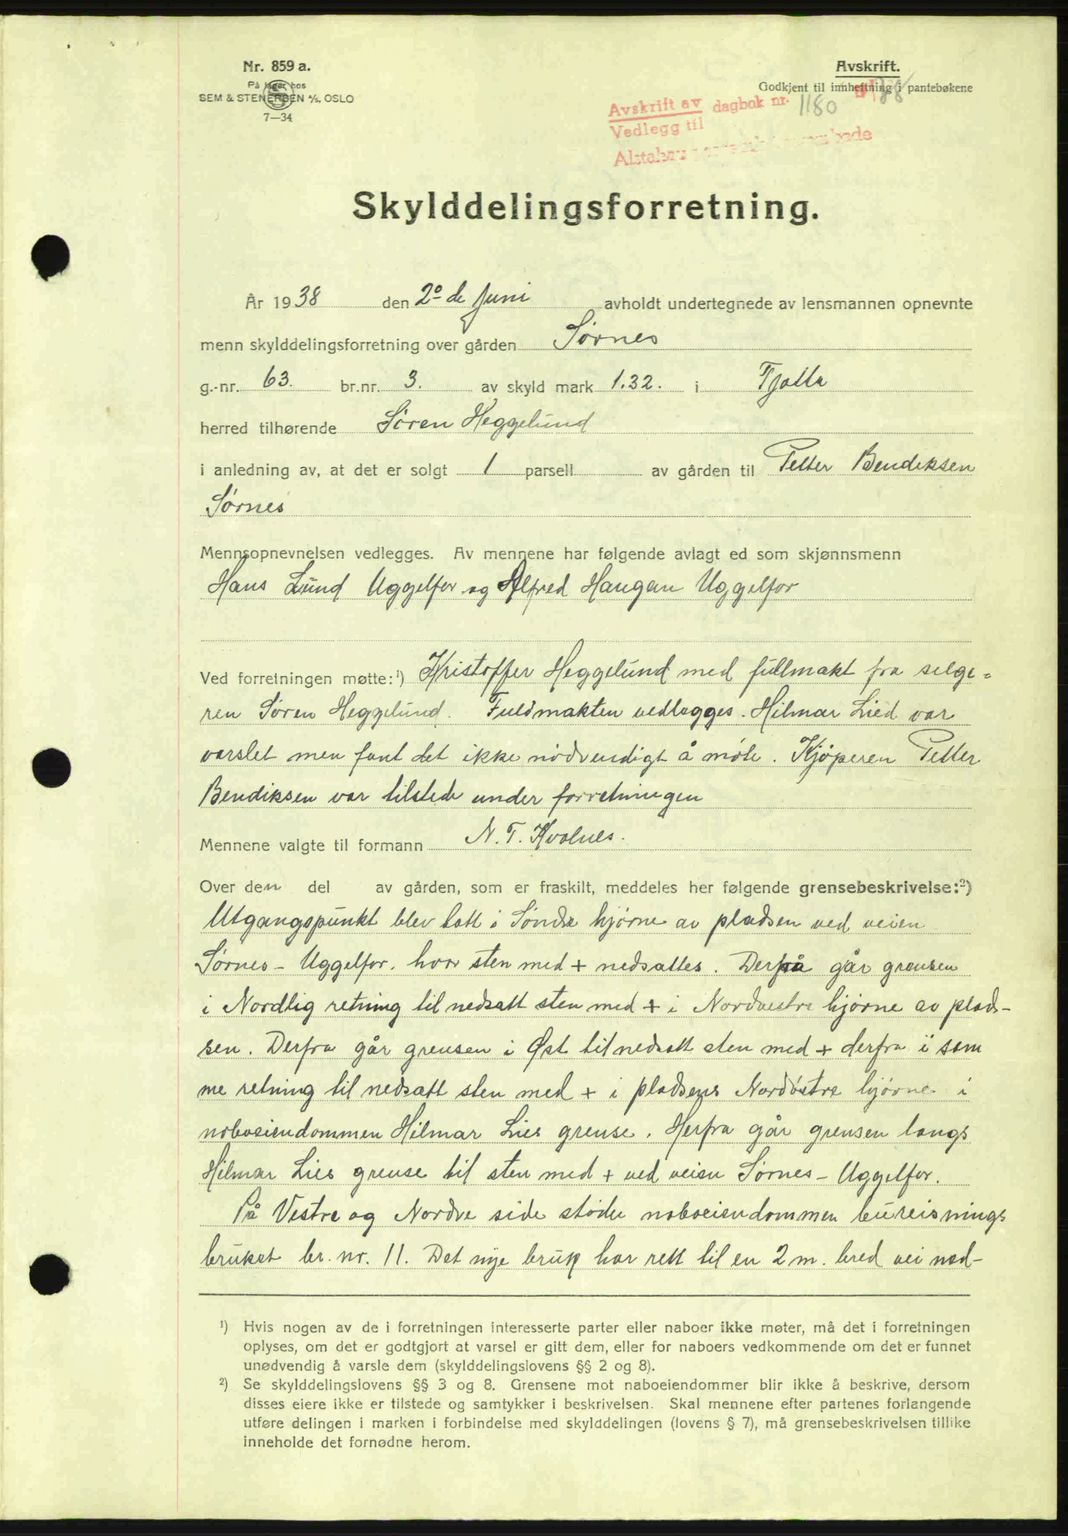 Nr. 859 a.
På lager hos
SEM & STENERSEN A/S, OSLO
7—34
Avskrift.
Godkjent til innheftning i pantebøkene
Avskrift av dagbok nr. 1180
Vedlegg til
Skylddelingsforretning.
År 1938 den 2de Juni avholdt undertegnede av lensmannen opnevnte
menn skylddelingsforretning over gården Sørnes
g.-nr. 63. br.nr. 3. av skyld mark 1.32. i Tjøtta
herred tilhørende Søren Heggelund
i anledning av, at det er solgt 1 parsell av gården til Petter Bendiksen
Sørnes
Mennsopnevnelsen vedlegges. Av mennene har følgende avlagt ed som skjønnsmenn
Hans Lund Uggelfor og Alfred Haugan Uggelfor
Ved forretningen møtte:¹) Kristoffer Heggelund med fullmakt fra selge=
ren Søren Heggelund. Fuldmakten vedlegges. Hilmar Lied var
varslet men fant det ikke nødvendigt å møte. Kjøperen Petter
Bendiksen var tilstede under forretningen
Mennene valgte til formann N. T. Kvalnes.
Over den del av gården, som er fraskilt, meddeles her følgende grensebeskrivelse:²)
Utgangspunkt blev tatt i Søndre hjørne av pladsen ved veien
Sørnes – Uggelfor. hvor sten med + nedsattes. Derfra går grensen
i Nordlig retning til nedsatt sten med + i Nordvestre hjørne av plad-
sen. Derfra går grensen i Øst til nedsatt sten med + derfra i sam
me retning til nedsatt sten med + i pladsens Nordøstre hjørne i
naboeiendommen Hilmar Lies grense. Herfra går grensen langs
Hilmar Lies grense til sten med + ved veien Sørnes – Uggelfor.
På Vestre og Nordre side støder naboeiendommen bureisnings
bruket br. nr. 11. Det nye bruk har rett til en 2 m. bred vei ned-
¹) Hvis nogen av de i forretningen interesserte parter eller naboer ikke møter, må det i forretningen
oplyses, om det er godtgjort at varsel er gitt dem, eller for naboers vedkommende om det er funnet
unødvendig å varsle dem (skylddelingslovens §§ 2 og 8).
²) Se skylddelingslovens §§ 3 og 8. Grensene mot naboeiendommer blir ikke å beskrive, dersom
disses eiere ikke er tilstede og samtykker i beskrivelsen. Skal mennene efter partenes forlangende
utføre delingen i marken i forbindelse med skylddelingen (lovens § 7), må grensebeskrivelsen tillike
inneholde det fornødne herom.